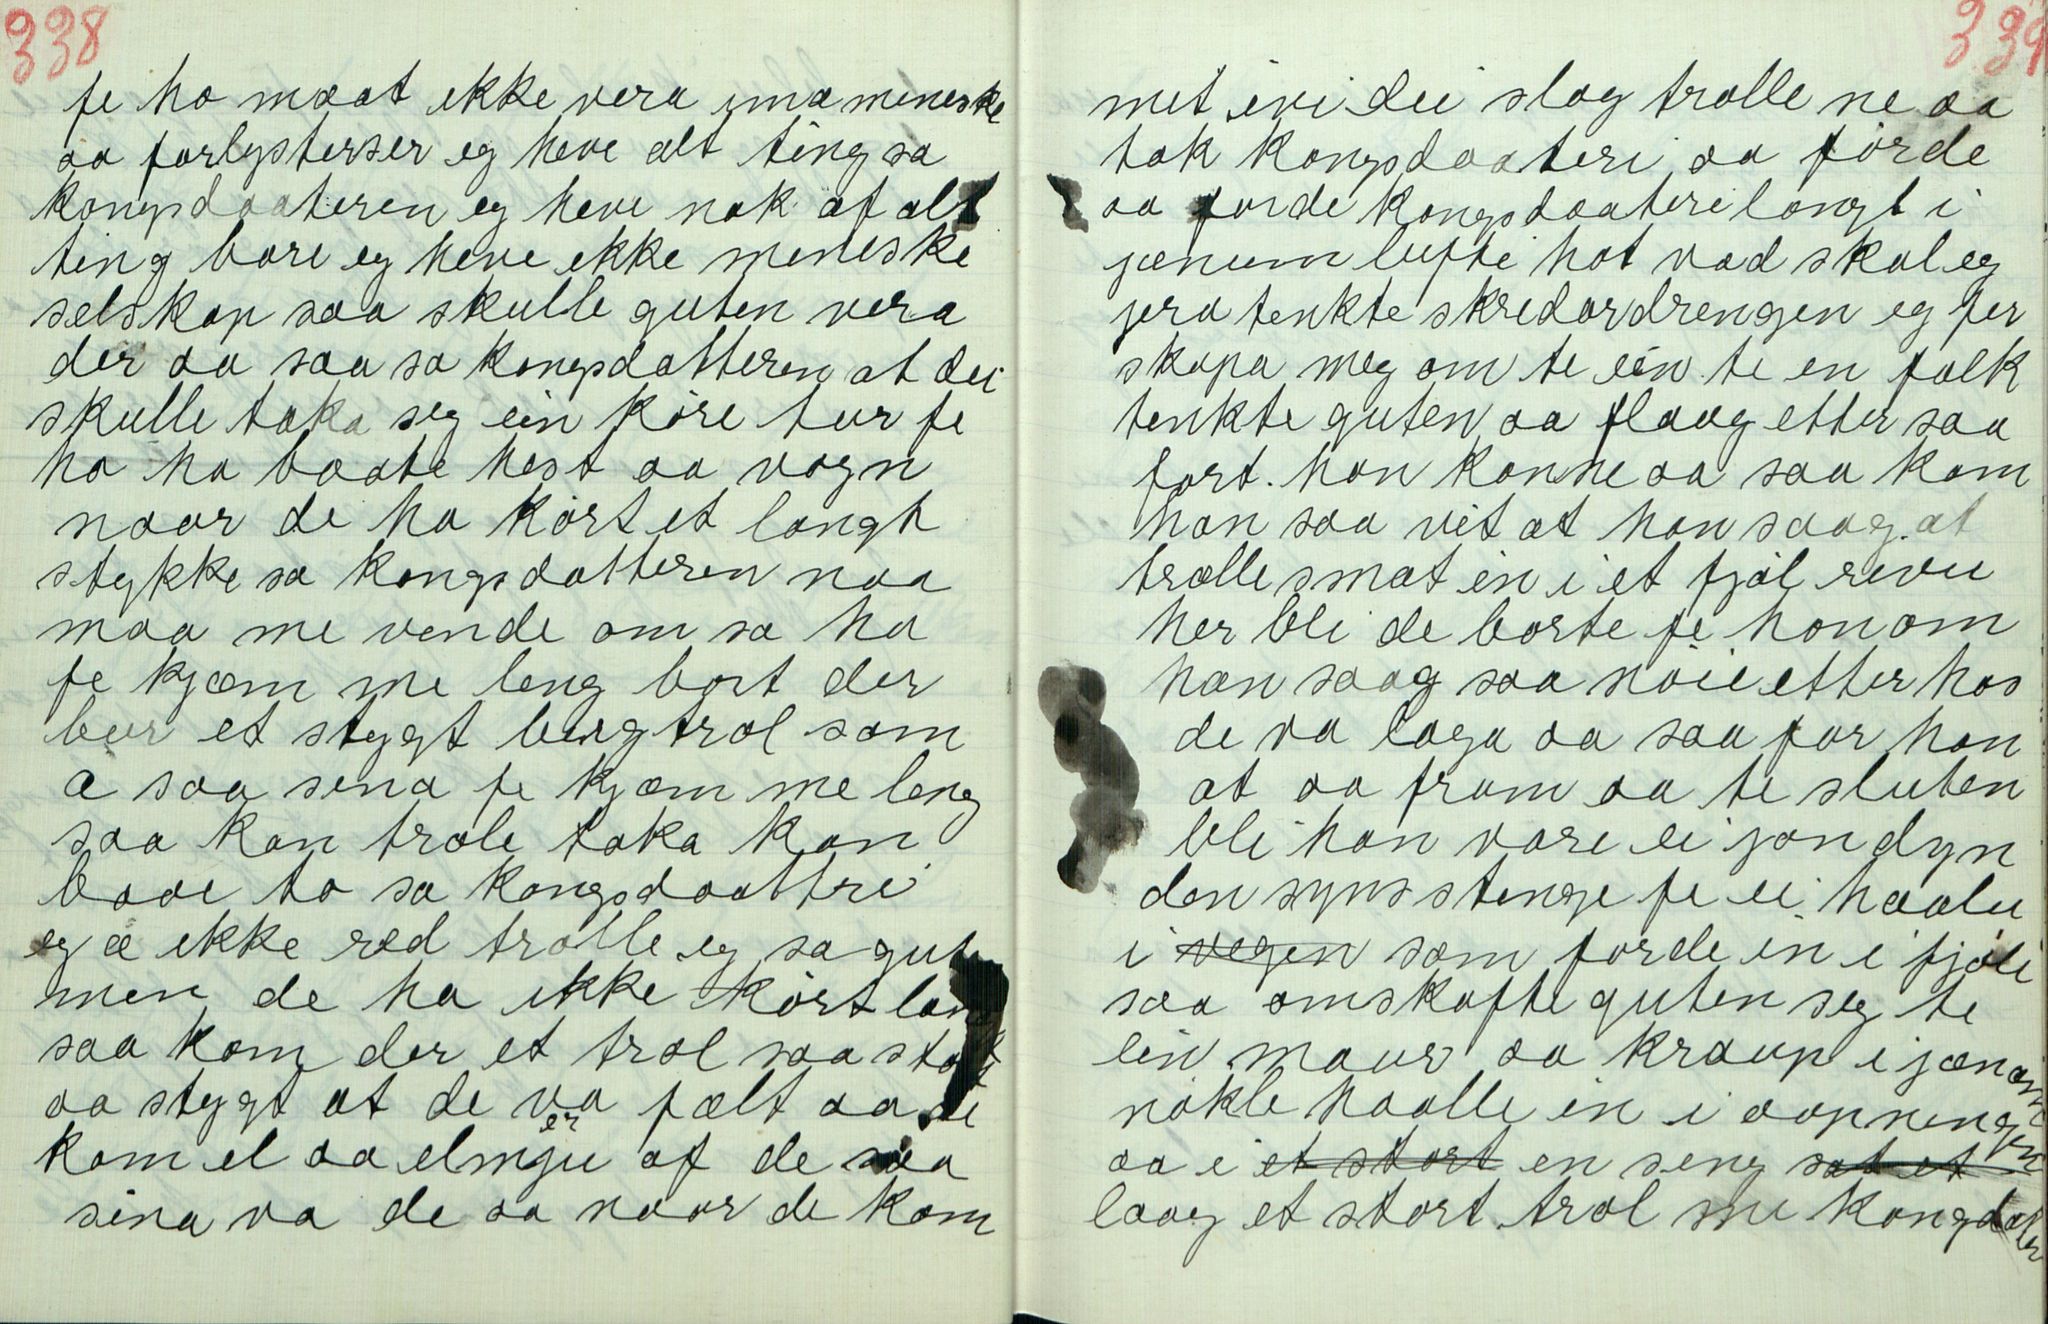 338
fe ho maat ikke vera ima mineske
aa forlysterser eg heve alt ting sa
kongsdaateren eg heve nok af alt
ting bare eg heve ikke mineske
selskap saa skulle guten vera
der aa saa sa kongsdatteren at dei
skulle taka seg ein köre tur fe
ho ha baate hest aa vogn
naar de ha kört et langh
stykke sa kongsdatteren naa
maa me vende om sa ho
fe kjæm me leng bort der
bur et stygt bergtrol som
æ saa sena fe kjæm me leng
saa kan trole taka kan
baae to sa kongsdaattri
eg æ ikke red trolle eg sa gut
men de ha ikke kört lan
saa kom der et trol saa stort
aa stygt at de va fælt aa de
kom el aa elmju er af de saa
sina va de aa naar de kom
339
met ivi dei slog trolle ne aa
tok kongsdaateri aa förde
aa förde kongsdaateri langt i
jænum lufti hot vad skal eg
jera tenkte skredardrengen eg fer
skapa meg om te ein te en falk
tenkte guten aa flaag etter saa
fort han konne aa saa kom
han saa vit at han saag at
trolle smat in i et fjöl revu
her bli de borte fe honom
han saag saa nöie etter hos
de va laga aa saa for han
at aa fram aa te sluten
bli han vare ei jon dyn
den syns stenge fe ei haalu
i vegen som förde in i fjöli
saa omskafte guten seg te
ein maur aa kraup i jænom
nökle haalle in i aapningen
aa i et stort en seng sat et
laag et stort trol mu kongdater